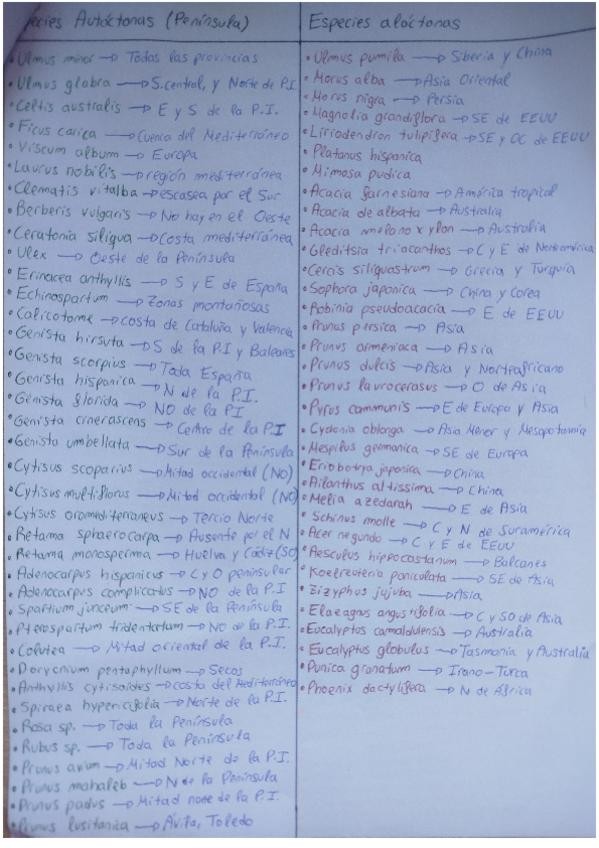 Especies Autóctonas (Península)
• Ulmus minor → Todas las provincias
• Ulmus glabra → S.central, y Norte de P.I
• Celtis australis → E y S de la P.I.
• Ficus carica → Cuenca del Mediterráneo
• Viscum album → Europa
• Laurus nobilis → región mediterránea
• Clematis vitalba → escasea por el Sur
• Berberis vulgaris → No hay en el Oeste
• Ceratonia siliqua → Costa mediterránea
• Ulex → Oeste de la Península
• Erinacea anthyllis → S y E de España
• Echinospartum → Zonas montañosas
• Calicotome → costa de Cataluña y Valencia
• Genista hirsuta → S de la P.I y Baleares
• Genista scorpius → Toda España
• Genista hispanica → N de la P.I.
• Genista florida → NO de la P.I
• Genista cinerascens → Centro de la P.I
• Genista umbellata → Sur de la Península
• Cytisus scoparius → Mitad occidental (NO)
• Cytisus multiflorus → Mitad occidental (NO)
• Cytisus oromediterraneus → Tercio Norte
• Retama sphaerocarpa → Ausente por el N
• Retama monosperma → Huelva y Cádiz (SO)
• Adenocarpus hispanicus → C y O peninsular
• Adenocarpus complicatus → NO de la P.I
• Spartium junceum → SE de la Península
• Pterospartum tridentatum → NO de la P.I.
• Colutea → Mitad oriental de la P.I.
• Dorycnium pentaphyllum → Secos
• Anthyllis cytisoides → costa del Mediterráneo
• Spiraea hypericifolia → Norte de la P.I.
• Rosa sp. → Toda la Península
• Rubus sp. → Toda la Península
• Prunus avium → Mitad Norte de la P.I.
• Prunus mahaleb → N de la Península
• Prunus padus → Mitad norte de la P.I.
• Prunus lusitanica → Ávila, Toledo
Especies alóctonas
• Ulmus pumila → Siberia y China
• Morus alba → Asia Oriental
• Morus nigra → Persia
• Magnolia grandiflora → SE de EEUU
• Liriodendron tulipifera → SE y OC de EEUU
• Platanus hispanica
• Mimosa pudica
• Acacia farnesiana → América tropical
• Acacia de albata → Australia
• Acacia melanoxylon → Australia
• Gleditsia triacanthos → C y E de Norteamérica
• Cercis siliquastrum → Grecia y Turquía
• Sophora japonica → China y Corea
• Robinia pseudoacacia → E de EEUU
• Prunus persica → Asia
• Prunus armeniaca → Asia
• Prunus dulcis → Asia y Norteafricano
• Prunus laurocerasus → O de Asia
• Pyrus communis → E de Europa y Asia
• Cydonia oblonga → Asia Menor y Mesopotamia
• Mespilus germanica → SE de Europa
• Eriobotrya japonica → China
• Ailanthus altissima → China
• Melia azedarah → E de Asia
• Schinus molle → C y N de Suramérica
• Acer negundo → C y E de EEUU
• Aesculus hippocastanum → Balcanes
• Koelreuteria paniculata → SE de Asia
• Zizyphus jujuba → Asia
• Elaeagnus angustifolia → C y SO de Asia
• Eucalyptus camaldulensis → Australia
• Eucalyptus globulus → Tasmania y Australia
• Punica granatum → Irano-Turca
• Phoenix dactylifera → N de África